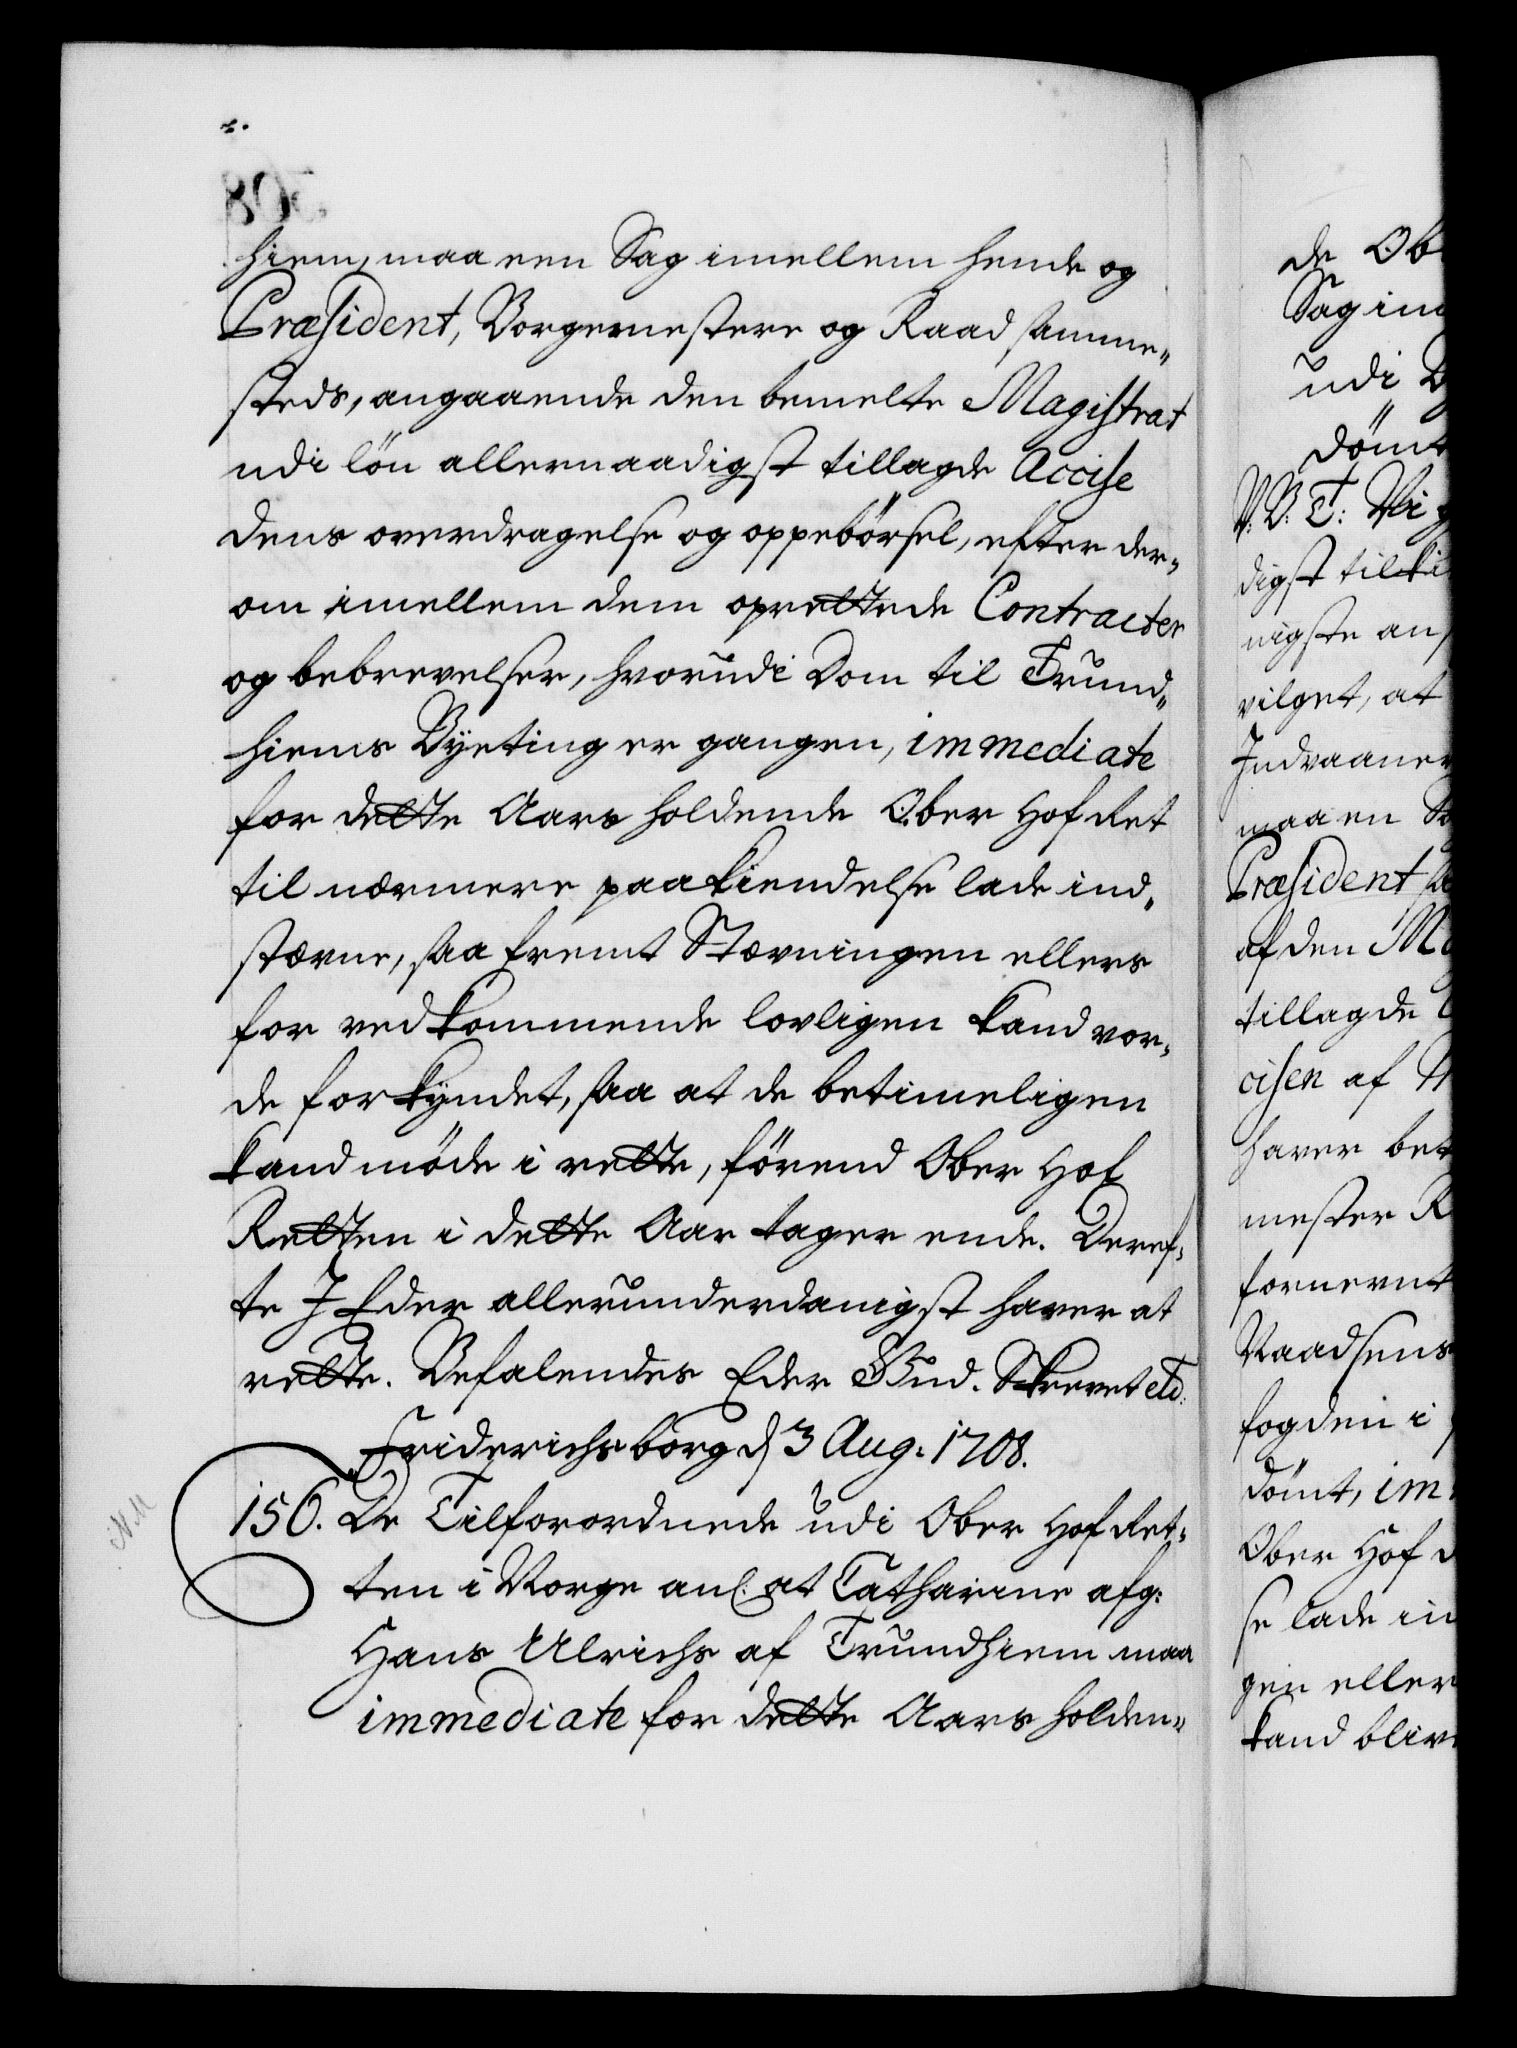 hiem, maa een Sag imellem hende og
Præsident, Borgemestere og Raad samme-
steds, angaaende den bemelte Magistrat
udi løn allernaadigst tillagde Accise
dens overdragelse og oppebørsel, efter der-
om imellem dem oprettede Contracter
og bebrevelser, hvorudi Dom til Trund-
hiems Byeting er gangen, immediate
for dette Aars holdende Ober Hof Ret
til nærmere paakiendelse lade ind-
stævne, saa fremt Stævningen ellers
for vedkommende lovligen kand vor-
de forkyndet, saa at de betimeligen
kand møde i rette, førend Ober Hof
Retten i dette Aar tager ende. Deref-
te I Eder allerunderdanigst haver at
rette. Befalendes Eder Gud. Skrevet etc:
Friderichsborg d 3 Aug: 1708.
156. De Tilforordnede udi Ober Hof Ret-
ten i Norge anl. at Catharine afg:
Hans Ulrichs af Trundhiem maa
immediate for dette Aars holden-
de Ob
Sag im
udi B
dömt
V: B: T: Vi g
digst tilki
nigste an
vilget, at
Indvaaner
maa en Sa
Præsident sa
af den Ma
tillagde
cisen af
haver bet
mester R
fornevnt
Raadsens
fogden i
dömt, im
Ober Hof
se lade in
gen eller
kand bliv